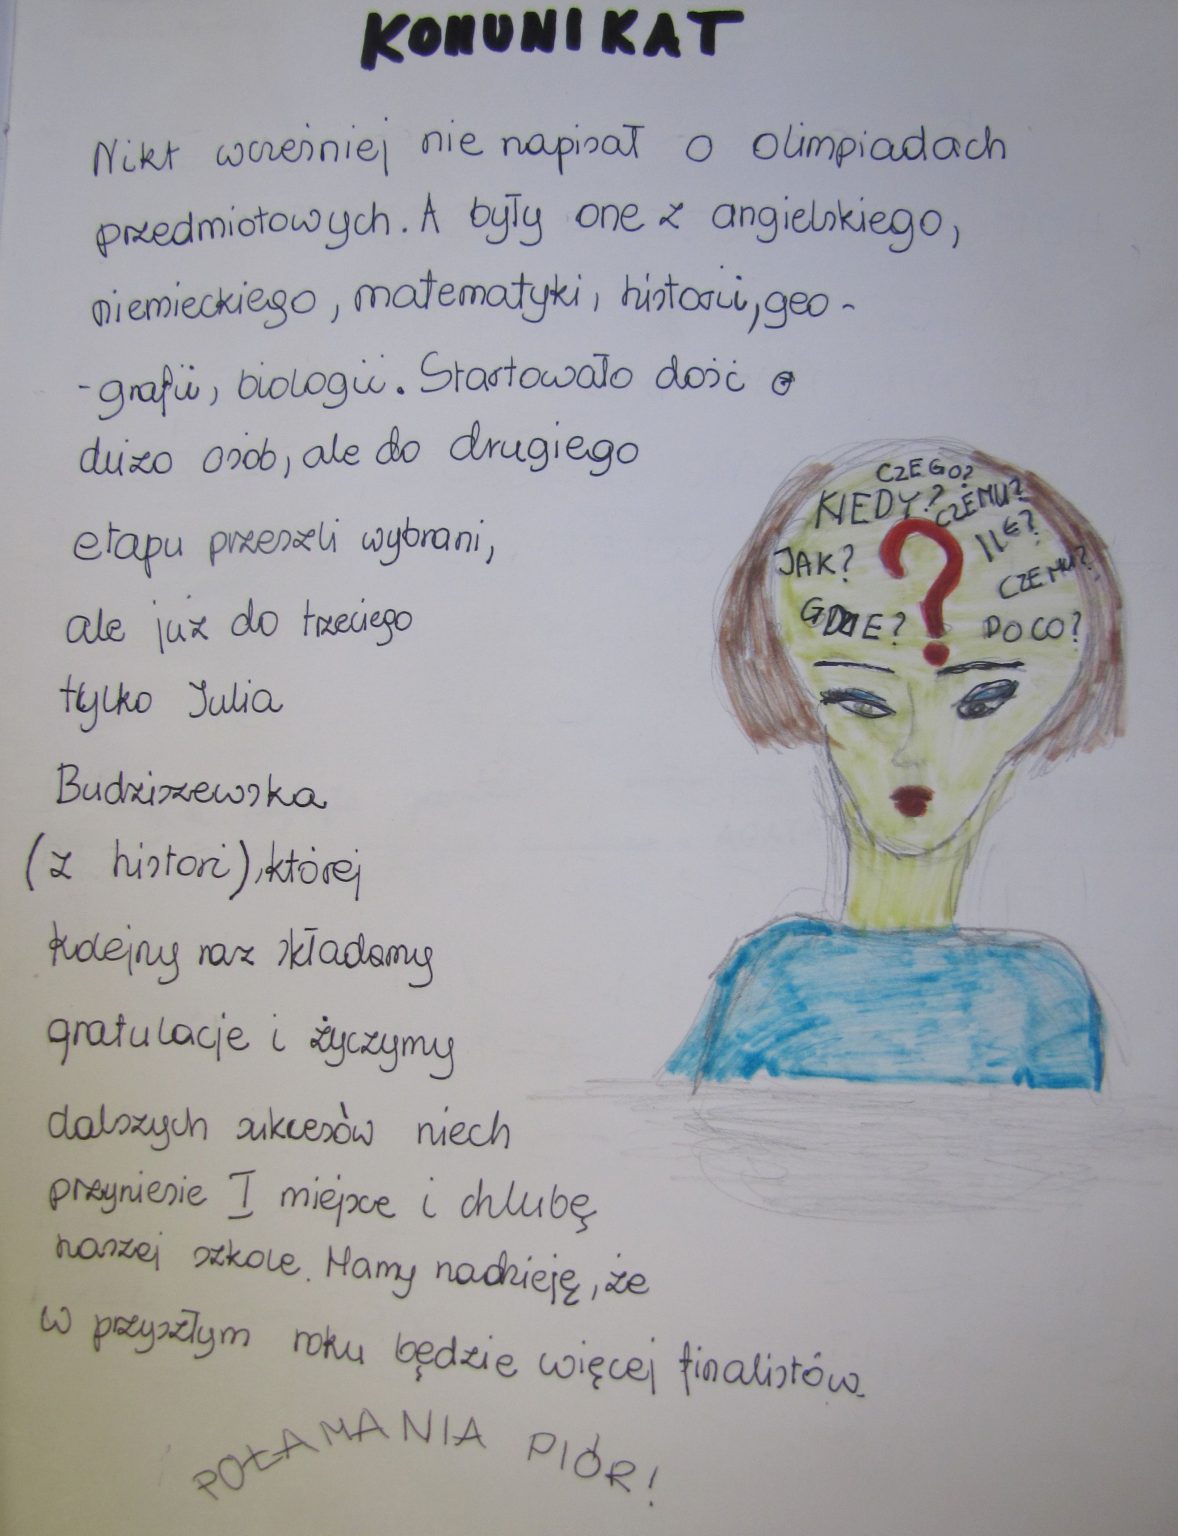 KOMUNIKAT
Nikt wcześniej nie napisał o olimpiadach
przedmiotowych. A były one z angielskiego,
niemieckiego, matematyki, historii, geo-
-grafii, biologii. Startowało dość
dużo osób, ale do drugiego
etapu przeszli wybrani,
ale już do trzeciego
tylko Julia
Budziszewska
(z histori), której
kolejny raz składamy
gratulacje i życzymy
dalszych sukcesów niech
przyniesie I miejsce i chlubę
naszej szkole. Mamy nadzieję, że
w przyszłym roku będzie więcej finalistów.
POŁAMANIA PIÓR!
CZEGO?
KIEDY? CZEMU?
ILE?
JAK? ?
CZEMU?
GDZIE? PO CO?